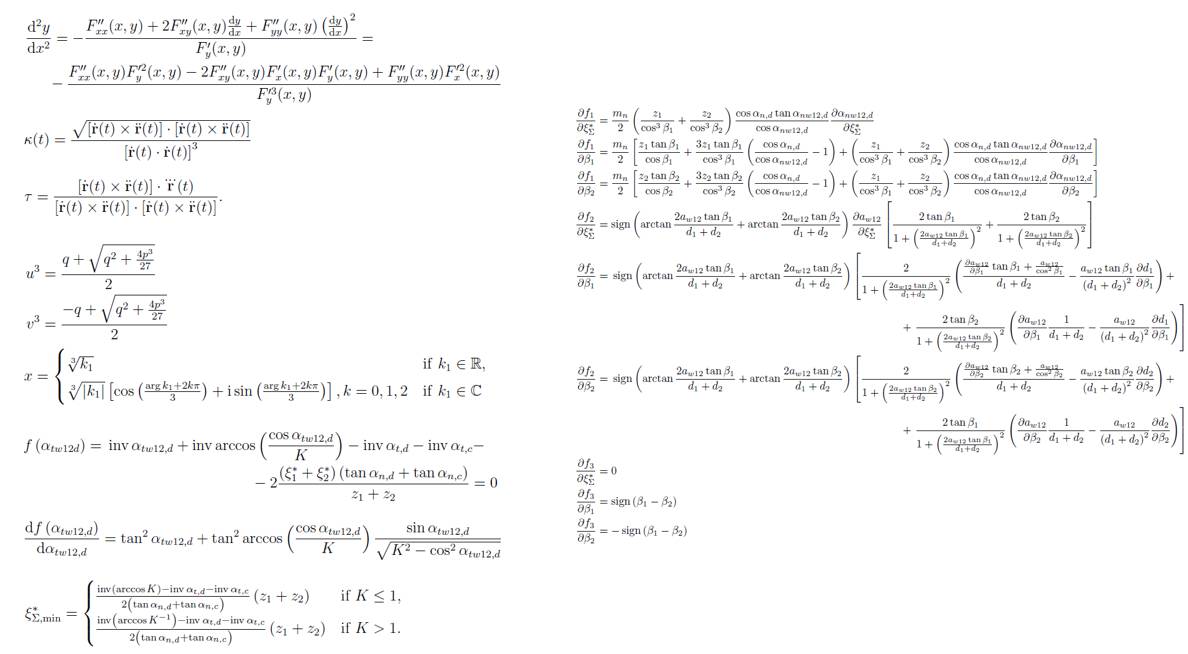 \frac{\mathrm{d}^2 y}{\mathrm{d}x^2} = -\frac{F''_{xx}(x,y) + 2F''_{xy}(x,y)\frac{\mathrm{d}y}{\mathrm{d}x} + F''_{yy}(x,y)\left(\frac{\mathrm{d}y}{\mathrm{d}x}\right)^2}{F'_y(x,y)} =
-\frac{F''_{xx}(x,y)F'^2_y(x,y) - 2F''_{xy}(x,y)F'_x(x,y)F'_y(x,y) + F''_{yy}(x,y)F'^2_x(x,y)}{F'^3_y(x,y)}
\kappa(t) = \frac{\sqrt{[\dot{\mathbf{r}}(t) \times \ddot{\mathbf{r}}(t)] \cdot [\dot{\mathbf{r}}(t) \times \ddot{\mathbf{r}}(t)]}}{[\dot{\mathbf{r}}(t) \cdot \dot{\mathbf{r}}(t)]^3}
\tau = \frac{[\dot{\mathbf{r}}(t) \times \ddot{\mathbf{r}}(t)] \cdot \dddot{\mathbf{r}}(t)}{[\dot{\mathbf{r}}(t) \times \ddot{\mathbf{r}}(t)] \cdot [\dot{\mathbf{r}}(t) \times \ddot{\mathbf{r}}(t)]}.
u^3 = \frac{q + \sqrt{q^2 + \frac{4p^3}{27}}}{2}
v^3 = \frac{-q + \sqrt{q^2 + \frac{4p^3}{27}}}{2}
x = \begin{cases} \sqrt[3]{k_1} & \text{if } k_1 \in \mathbb{R}, \\ \sqrt[3]{|k_1|}\left[\cos\left(\frac{\arg k_1 + 2k\pi}{3}\right) + \mathrm{i}\sin\left(\frac{\arg k_1 + 2k\pi}{3}\right)\right], k = 0, 1, 2 & \text{if } k_1 \in \mathbb{C} \end{cases}
f(\alpha_{tw12d}) = \operatorname{inv}\alpha_{tw12,d} + \operatorname{inv}\arccos\left(\frac{\cos\alpha_{tw12,d}}{K}\right) - \operatorname{inv}\alpha_{t,d} - \operatorname{inv}\alpha_{t,c} -
- 2\frac{(\xi_1^* + \xi_2^*)(\tan\alpha_{n,d} + \tan\alpha_{n,c})}{z_1 + z_2} = 0
\frac{\mathrm{d}f(\alpha_{tw12,d})}{\mathrm{d}\alpha_{tw12,d}} = \tan^2\alpha_{tw12,d} + \tan^2\arccos\left(\frac{\cos\alpha_{tw12,d}}{K}\right)\frac{\sin\alpha_{tw12,d}}{\sqrt{K^2 - \cos^2\alpha_{tw12,d}}}
\xi^*_{\Sigma,\min} = \begin{cases} \frac{\operatorname{inv}(\arccos K) - \operatorname{inv}\alpha_{t,d} - \operatorname{inv}\alpha_{t,c}}{2(\tan\alpha_{n,d} + \tan\alpha_{n,c})}(z_1 + z_2) & \text{if } K \leq 1, \\ \frac{\operatorname{inv}(\arccos K^{-1}) - \operatorname{inv}\alpha_{t,d} - \operatorname{inv}\alpha_{t,c}}{2(\tan\alpha_{n,d} + \tan\alpha_{n,c})}(z_1 + z_2) & \text{if } K > 1. \end{cases}
\frac{\partial f_1}{\partial \xi^*_\Sigma} = \frac{m_n}{2}\left(\frac{z_1}{\cos^3\beta_1} + \frac{z_2}{\cos^3\beta_2}\right)\frac{\cos\alpha_{n,d}\tan\alpha_{nw12,d}}{\cos\alpha_{nw12,d}}\frac{\partial\alpha_{nw12,d}}{\partial\xi^*_\Sigma}
\frac{\partial f_1}{\partial \beta_1} = \frac{m_n}{2}\left[\frac{z_1\tan\beta_1}{\cos\beta_1} + \frac{3z_1\tan\beta_1}{\cos^3\beta_1}\left(\frac{\cos\alpha_{n,d}}{\cos\alpha_{nw12,d}} - 1\right) + \left(\frac{z_1}{\cos^3\beta_1} + \frac{z_2}{\cos^3\beta_2}\right)\frac{\cos\alpha_{n,d}\tan\alpha_{nw12,d}}{\cos\alpha_{nw12,d}}\frac{\partial\alpha_{nw12,d}}{\partial\beta_1}\right]
\frac{\partial f_1}{\partial \beta_2} = \frac{m_n}{2}\left[\frac{z_2\tan\beta_2}{\cos\beta_2} + \frac{3z_2\tan\beta_2}{\cos^3\beta_2}\left(\frac{\cos\alpha_{n,d}}{\cos\alpha_{nw12,d}} - 1\right) + \left(\frac{z_1}{\cos^3\beta_1} + \frac{z_2}{\cos^3\beta_2}\right)\frac{\cos\alpha_{n,d}\tan\alpha_{nw12,d}}{\cos\alpha_{nw12,d}}\frac{\partial\alpha_{nw12,d}}{\partial\beta_2}\right]
\frac{\partial f_2}{\partial \xi^*_\Sigma} = \operatorname{sign}\left(\arctan\frac{2a_{w12}\tan\beta_1}{d_1 + d_2} + \arctan\frac{2a_{w12}\tan\beta_2}{d_1 + d_2}\right)\frac{\partial a_{w12}}{\partial\xi^*_\Sigma}\left[\frac{2\tan\beta_1}{1 + \left(\frac{2a_{w12}\tan\beta_1}{d_1+d_2}\right)^2} + \frac{2\tan\beta_2}{1 + \left(\frac{2a_{w12}\tan\beta_2}{d_1+d_2}\right)^2}\right]
\frac{\partial f_2}{\partial \beta_1} = \operatorname{sign}\left(\arctan\frac{2a_{w12}\tan\beta_1}{d_1 + d_2} + \arctan\frac{2a_{w12}\tan\beta_2}{d_1 + d_2}\right)\left[\frac{2}{1 + \left(\frac{2a_{w12}\tan\beta_1}{d_1+d_2}\right)^2}\left(\frac{\frac{\partial a_{w12}}{\partial\beta_1}\tan\beta_1 + \frac{a_{w12}}{\cos^2\beta_1}}{d_1 + d_2} - \frac{a_{w12}\tan\beta_1}{(d_1 + d_2)^2}\frac{\partial d_1}{\partial\beta_1}\right) +
+ \frac{2\tan\beta_2}{1 + \left(\frac{2a_{w12}\tan\beta_2}{d_1+d_2}\right)^2}\left(\frac{\partial a_{w12}}{\partial\beta_1}\frac{1}{d_1 + d_2} - \frac{a_{w12}}{(d_1 + d_2)^2}\frac{\partial d_1}{\partial\beta_1}\right)\right]
\frac{\partial f_2}{\partial \beta_2} = \operatorname{sign}\left(\arctan\frac{2a_{w12}\tan\beta_1}{d_1 + d_2} + \arctan\frac{2a_{w12}\tan\beta_2}{d_1 + d_2}\right)\left[\frac{2}{1 + \left(\frac{2a_{w12}\tan\beta_2}{d_1+d_2}\right)^2}\left(\frac{\frac{\partial a_{w12}}{\partial\beta_2}\tan\beta_2 + \frac{a_{w12}}{\cos^2\beta_2}}{d_1 + d_2} - \frac{a_{w12}\tan\beta_2}{(d_1 + d_2)^2}\frac{\partial d_2}{\partial\beta_2}\right) +
+ \frac{2\tan\beta_1}{1 + \left(\frac{2a_{w12}\tan\beta_1}{d_1+d_2}\right)^2}\left(\frac{\partial a_{w12}}{\partial\beta_2}\frac{1}{d_1 + d_2} - \frac{a_{w12}}{(d_1 + d_2)^2}\frac{\partial d_2}{\partial\beta_2}\right)\right]
\frac{\partial f_3}{\partial \xi^*_\Sigma} = 0
\frac{\partial f_3}{\partial \beta_1} = \operatorname{sign}(\beta_1 - \beta_2)
\frac{\partial f_3}{\partial \beta_2} = -\operatorname{sign}(\beta_1 - \beta_2)